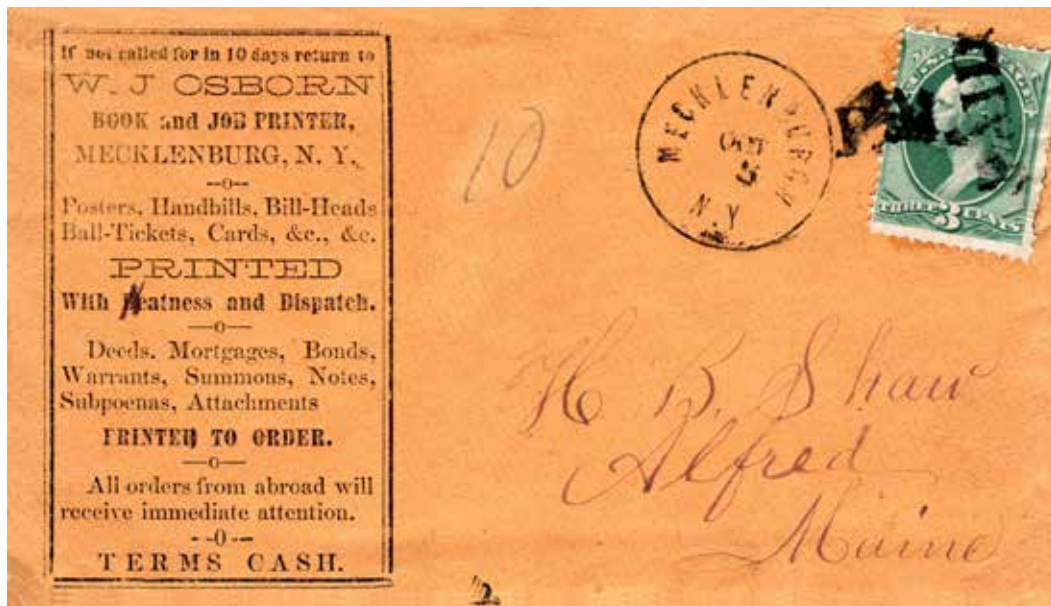 If not called for in 10 days return to
W. J OSBORN
BOOK and JOB PRINTER,
MECKLENBURG, N. Y.
--o--
Posters, Handbills, Bill-Heads
Ball-Tickets, Cards, &c., &c.
PRINTED
With Neatness and Dispatch.
—o—
Deeds. Mortgages, Bonds,
Warrants, Summons, Notes,
Subpoenas, Attachments
PRINTED TO ORDER.
—o—
All orders from abroad will
receive immediate attention.
--o--
TERMS CASH.
10
MECKLENBURGH
OCT
N.Y
THREE 3 CENTS
H B. Shaw
Alfred
Maine
2